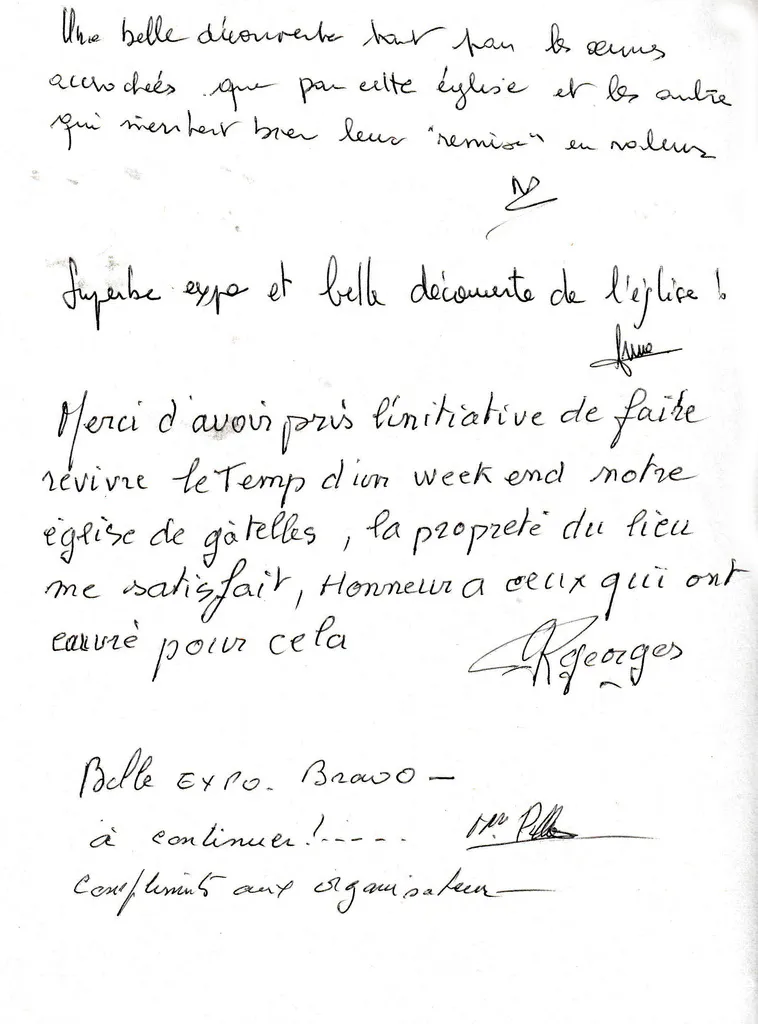 Une belle découverte tant par les œuvres
accrochées que par cette église et les autre
qui méritent bien leur "remise" en valeur
Superbe expo et belle découverte de l'église !
Merci d'avoir pris l'initiative de faire
revivre le Temp d'un week end notre
église de gâtelles, la propreté du lieu
me satisfait, Honneur a ceux qui ont
œuvré pour cela
georges
Belle EXPO. Bravo –
à continuer !-----
Compliments aux organisateurs